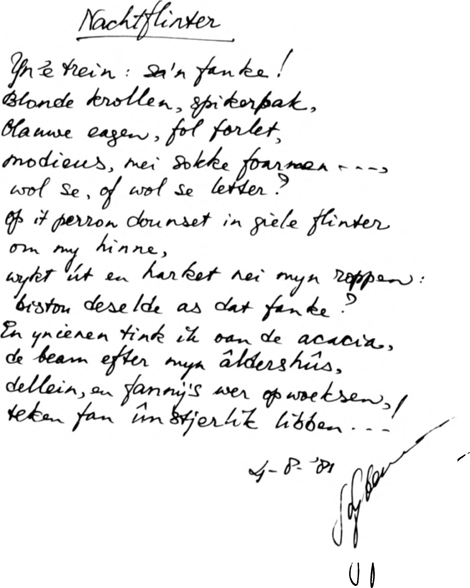 Nachtflinter
Yn 'e trein: sa'n fanke!
Blonde krollen, spikerpak,
blauwe eagen, fol forlet,
modieus, mei sokke foarmen ----,
wol se, of wol se letter?
op it perron dounset in giele flinter
om my hinne,
wykt út en harket nei myn roppen:
bistou deselde as dat fanke?
En ynienen tink ik oan de acacia,
de beam efter myn âldershûs,
dellein, en fannijs wer opwoeksen,
teken fan ûnstjerlik libben ---
4-8-'81